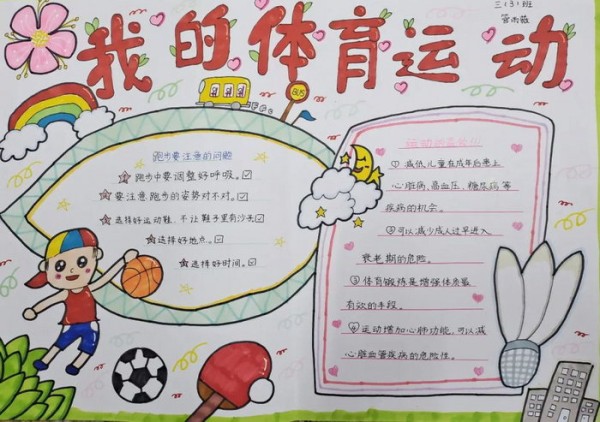 三(3)班
我的体育运动
BUS
跑步要注意的问题
☆跑步中要调整好呼吸。☑
☆要注意跑步的姿势对不对。☑
☆选择好运动鞋，不让鞋子里有沙子☑
☆选择好地点。☑
☆选择好时间。☑
① 减低儿童在成年后患上
心脏病，高血压，糖尿病等
疾病的机会。
②可以减少成人过早进入
衰老期的危险。
③体育锻炼是增强体质最
有效的手段。
④运动增加心肺功能，可以减
心脏血管疾病的危险性。